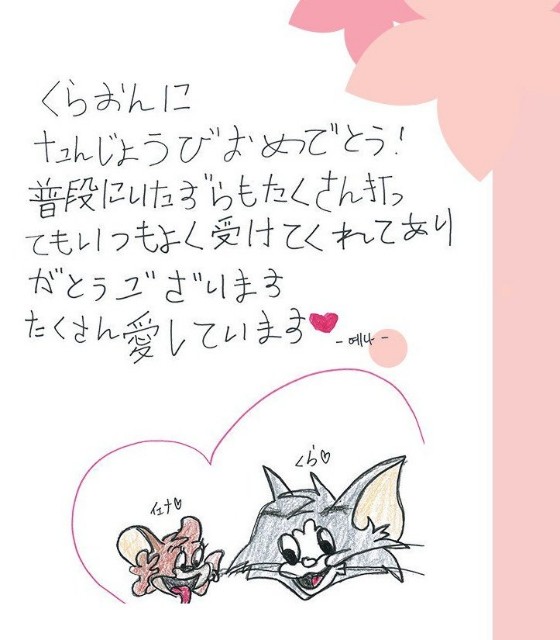 くらおんに
たんじょうびおめでとう!
普段にいたずらもたくさん打っ
てもいつもよく受けてくれてあり
がとうございます
たくさん愛しています
-예나-
くら♡
イェナ♡